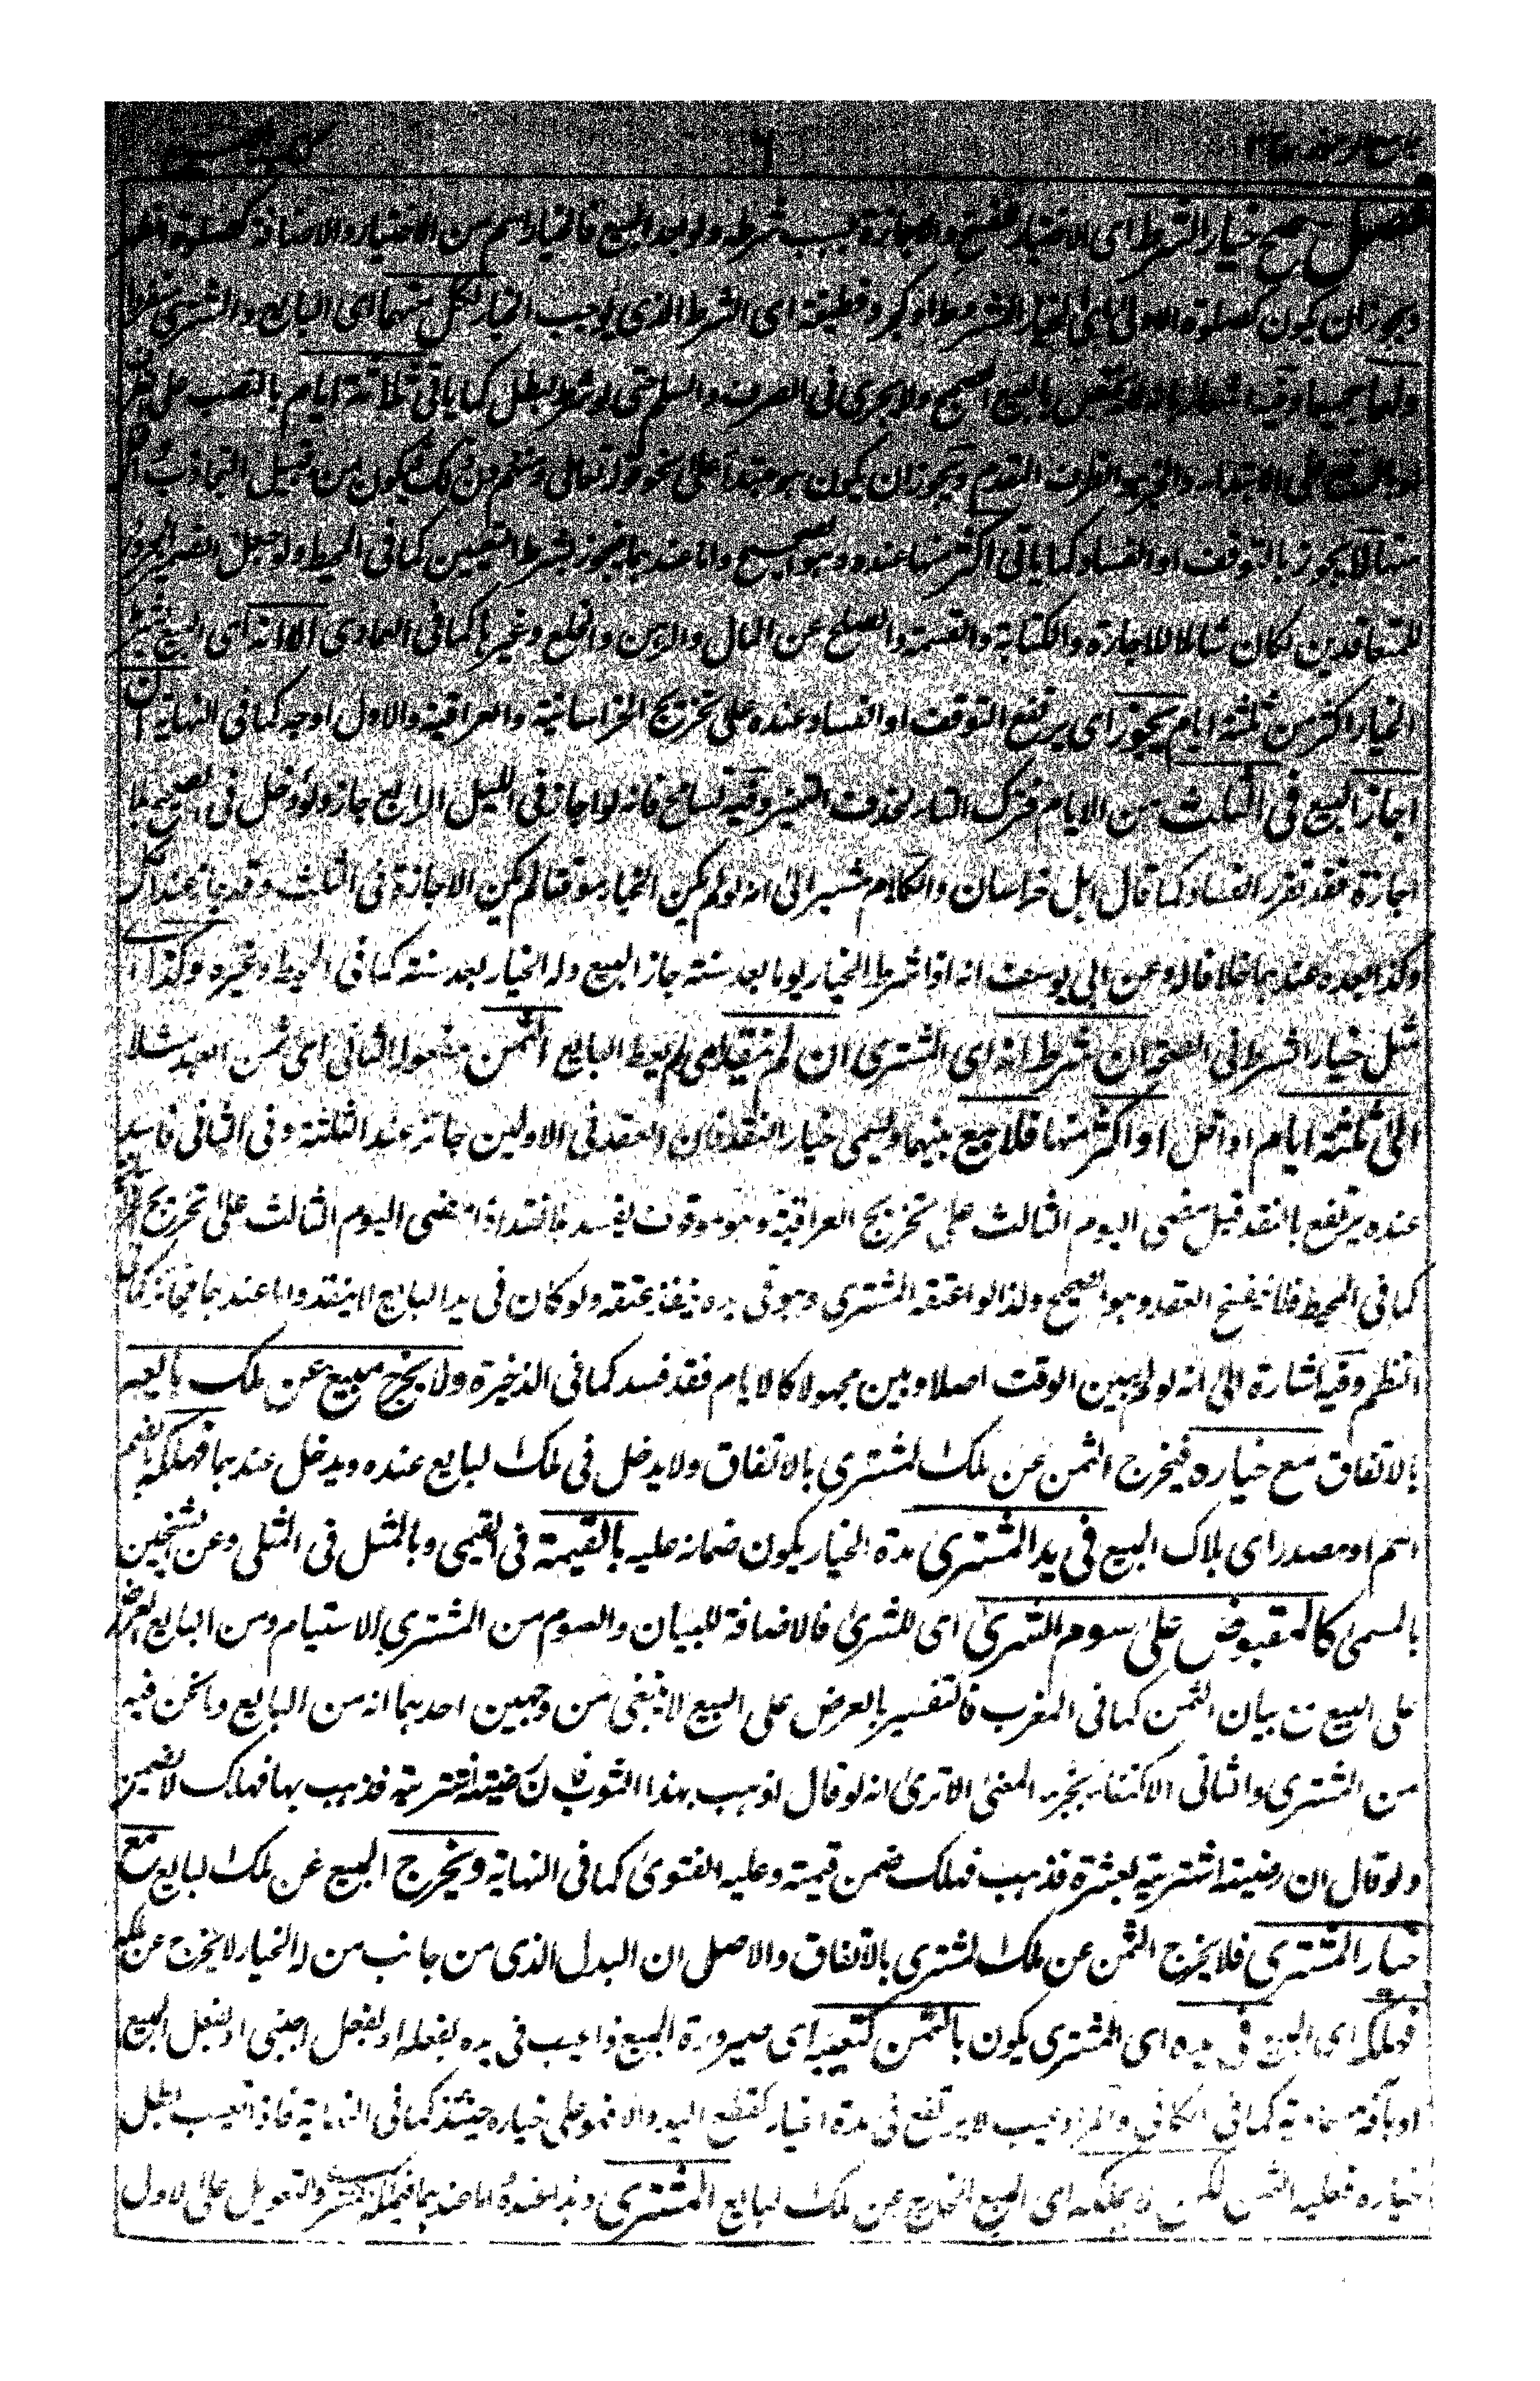 فصل صح خيار الشرط اى الاختيار للفسخ والاجازة بسبب شرطه ولو بعد البيع فالخيار اسم من الاختيار والاضافة كصلوة الظهر
ويجوز ان يكون كصلوة الاولى اى الخيار المشروط او كجرد قطيفة اى الشرط الذى يوجب الخيار لكل منهما اى البايع والمشترى منفردا
ولهما جميعا وفيه اشعار بانه لا يختص بالبيع الصحيح ولا يجرى فى الصرف والسلم حتى لو شرط بطل كما ياتى ثلاثة ايام بالنصب على الظرف
او بالرفع على الابتداء والخبر هو الظرف المقدم ويجوز ان يكون هو مبتدأ على نحو قوله تعالى ومنهم دون ذلك فيكون من قبيل التجاذب
منها لا يجوز بالتوقف او الفساد كما ياتى اكثر منها عنده وهو الصحيح واما عندهما فيجوز بشرط التعيين كما فى المحيط ولو جعل الضمير المجرور
للمتعاقدين لكان شاملا للاجارة والكتابة والقسمة والصلح عن المال والرهن والخلع وغيرها كما فى العمادى الا انه اى البيع بشرط
الخيار اكثر من ثلثة ايام يجوز اى يرتفع التوقف او الفساد عنده على تخريج الخراسانية والعراقية والاول اوجه كما فى النهاية ان
اجاز البيع فى الثلث من الايام فترك التاء لحذف المميز وفيه تسامح فانه لو اجاز فى الليل الرابع جاز ولو دخل فى الصبح بلا
اجازة فقد تقرر الفساد كما قال اهل خراسان والكلام مشير الى انه لو لم يكن الخيار موقتا لم يكن الاجازة فى الثلث وقد جاز عنده
وكذا بعده عندهما خلافا له وعن ابى يوسف انه اذا شرط الخيار يوما بعد سنة جاز البيع وله الخيار بعد سنة كما فى المحيط وغيره وكذا اى
مثل خيار الشرط فى الصحة ان شرط انه اى المشترى ان لم ينقد اى لم يعط البايع الثمن مفعوله الثانى اى ثمن العبد مثلا
الى ثلثة ايام او اقل او اكثر منها فلا بيع بينهما ويسمى خيار النقد فان العقد فى الاولين جائز عند الثلثة وفى الثانى فاسد
عنده يرتفع بالنقد قبل مضى اليوم الثالث على تخريج العراقية وموقوف يفسد بالنقد اذا مضى اليوم الثالث على تخريج
كما فى المحيط فلا ينفسخ العقد وهو الصحيح ولذا لو اعتقه المشترى وهو فى يده ينفذ عتقه ولو كان فى يد البايع لا ينفذ واما عندهما فجائز كما فى
النظم وفيه اشارة الى انه لو لم يبين الوقت اصلا وبين مجهولا كالايام فقد فسد كما فى الذخيرة ولا يخرج مبيع عن ملك بايعه
بالاتفاق مع خياره فيخرج الثمن عن ملك المشترى بالاتفاق ولا يدخل فى ملك البايع عنده ويدخل عندهما فهلكه بالضم
اسم او مصدر اى هلاك المبيع فى يد المشترى مدة الخيار يكون ضمانه عليه بالقيمة فى القيمى وبالمثل فى المثلى وعن الشيخين
بالمسمى كالمقبوض على سوم الشرى اى للشرى فالاضافة للبيان والسوم من المشترى الاستيام ومن البايع العرض
على البيع مع بيان الثمن كما فى المغرب فالتفسير بالعرض على البيع لا ينبغى من وجهين احدهما انه من البايع وما نحن فيه
من المشترى والثانى الاكتفاء بجزء المعنى الا ترى انه لو قال اذهب بهذا الثوب فان رضيته اشتريته فذهب بها فهلك لا يضمن
ولو قال ان رضيته اشتريته بعشرة فذهب فهلك ضمن قيمته وعليه الفتوى كما فى النهاية ويخرج المبيع عن ملك البايع مع
خيار المشترى فلا يخرج الثمن عن ملك المشترى بالاتفاق والاصل ان البدل الذى من جانب من له الخيار لا يخرج عن ملكه
فهلكه اى المبيع فى يده اى المشترى يكون بالثمن كتعيبه اى صيرورة المبيع ذا عيب فى يده بفعله او بفعل اجنبى او بفعل المبيع
او بآفة سماوية كما فى الكافى والمراد عيب لا يرتفع فى مدة الخيار كقطع اليد والا فهو على خياره حينئذ كما فى النهاية فاذا تعيب بطل
خياره فعليه الثمن لكن لا يملكه اى المبيع الخارج عن ملك البايع المشترى وهذا عنده اما عندهما فيملكه المشترى والتعويل على الاول